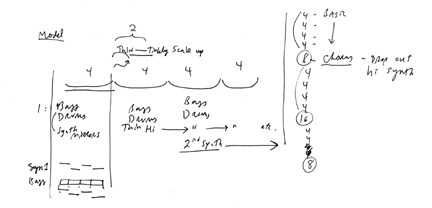 Model
2
Thin — Timbly Scale up
4 4 4 4
1: Bass Bass Bass
Drums Drums Drums
Synth Thin Hi → " → " etc.
2nd Synth
Syn 1
Bass
4 - BASIC
4 -
4 -
4 -
8 - Chorus - Drop out
hi synth
4
4
4
4
16
4
4
8